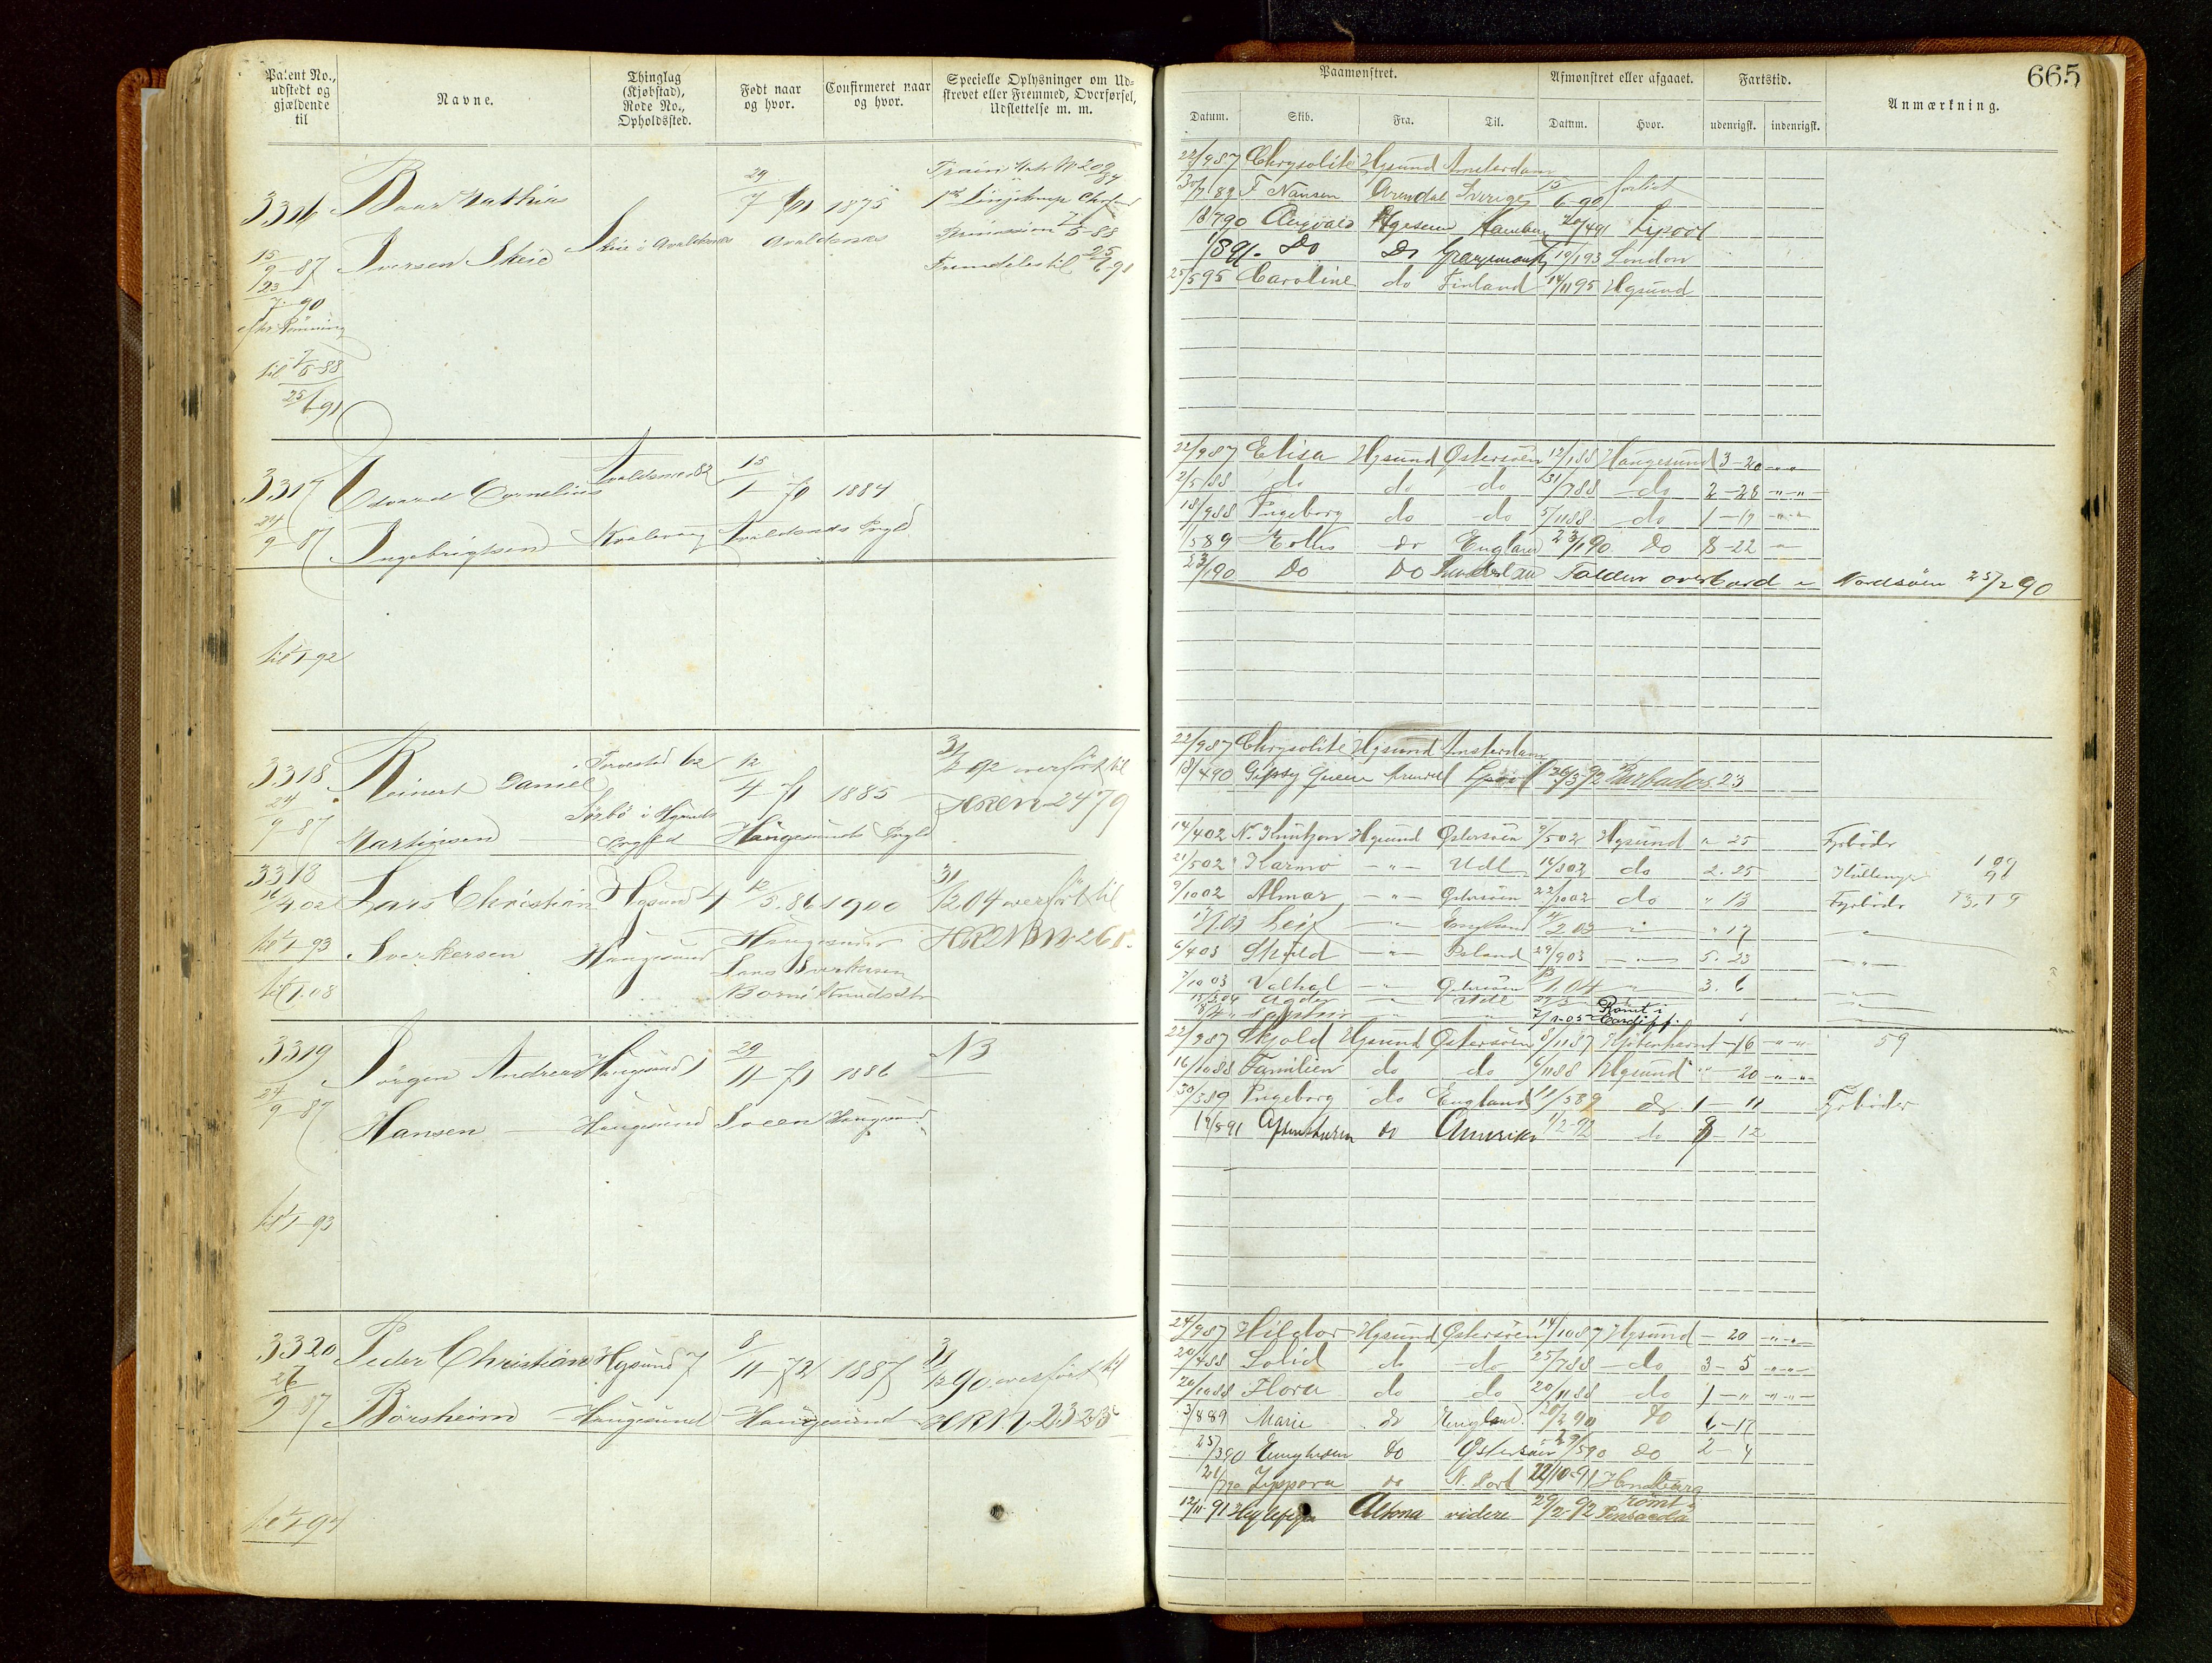 Patent No., udstedt og gjældende til
Navne.
Thinglag (Kjøbstad), Rode No., Opholdssted.
Født naar og hvor.
Confirmeret naar og hvor.
Specielle Oplysninger om Udskrevet eller Fremmed, Overførsel, Udslettelse m. m.
3316 Baar Mathias
Iversen Skeie Skeie i Avaldsnæs
29/7 1875
Avaldsnæs
15/9-87
23/7-90
til 7/5-88
25/6 91
3317 Edvard Cornelius Avaldsnæs 82 15/1-70 1884
24/9-87 Ingebrigtsen Kvalevaag Avaldsnæs Prgld
til 1/1-92
3318 Reinert Daniel Torvestad 62 12/4-71 1885 31/12 92 overført til
24/9-87 Martinsen Sørbø i Haugesunds Prgld
HREN 2479
3318 Lars Christian Hgsund 4 12/5.86 1900 31/12 04 overført til
16/4.02
til 1/1-93 Sverkersen Haugesund Haugesund
Lars Sverkersen
til 1/1.08
3319 Jørgen Andreas Haugesund 1 29/11-71 1886 N3
24/9-87 Hansen Haugesund Sveen Haugesund
til 1/1-93
3320 Peder Christian Hgsund 7 8/11-72 1887 31/12 90 overført til
26/9-87 Børsheim Haugesund Haugesund HREN 2323
til 1/1-94
Paamønstret.
Afmønstret eller afgaaet.
Fartstid.
665
Datum. Skib. Fra. Til. Datum. Hvor. udenrigsk. indenrigsk. Anmærkning.
22/9 87 Chrysolite Hgsund Amsterdam
30/7 89 F Nansen Arendal Sverige 15/6-90 forlist
Hamburg Lipool
1/8 91. Do Do Grangemouth 10/1 93 London
25/5 95 Caroline do Finland 14/11 95 Hgsund
22/9 87 Elisa Hgsund Østersøen 12/1 88 Haugesund 3-20 "-"
2/5 88 do do do 31/7 88 do 2-28 "-"
18/9 88 Ingeborg do do 5/11 88 do 1-17 "-"
1/5 89 Eolus do England 23/1 90 Do 8-22 "
23/1 90 Do Do Sunderland Falden overbord i Nordsøen 25/2 90
22/9 87 Chrysolite Hgsund Amsterdam
18/4 90 Gipsy Queen Arendal Lpool 26/3 92 Barbados 23
14/4 02 N. Knudzon Hgsund Østersøen 9/5 02 Hgsund " 25 Fyrbøder
21/5 02 Karmø " Udl 16/8 02 do 2. 25 Kullemp
9/10 02 Almar " Østersøen 22/10 02 do " 13 Fyrbøder
1/1.03 Leif " England 4/2 03 " " 17 "
6/4 03 Skjold " Island 29/9 03 " 5. 23 "
7/10 03 Valhal " Østersøen 13/1.04 " 3. 6 "
15/3 04 Agder " Udl
7/1-05 Rømt i Cardiff.
22/9 87 Skjold Hgsund Østersøen 8/11 87 Kjøbenhavn 1-16 "-" 59
16/10 88 Familien do do 6/11 88 Hgsund "-20 "-"
30/3 89 Ingeborg do England 11/5 89 do 1-11 Fyrbøder
14/8 91 do Amerika 1/2-92 do 12
24/9 87 Hildor Hgsund Østersøen 14/10 87 Hgsund - 20 "-"
20/4 88 Solid do do 25/7 88 do 3-5 "-"
20/10 88 Flora do do 20/11 88 do 1-" "-"
3/8 89 Marie do England. 20/2 90 do 6-17
25/3 90 Enigheden do Østersøen 29/5 90 do 2-4
21/7 90 Zippora do 22/10-91 Hamburg
12/11 91 Altona videre 29/2-92 rømt i Pensacola